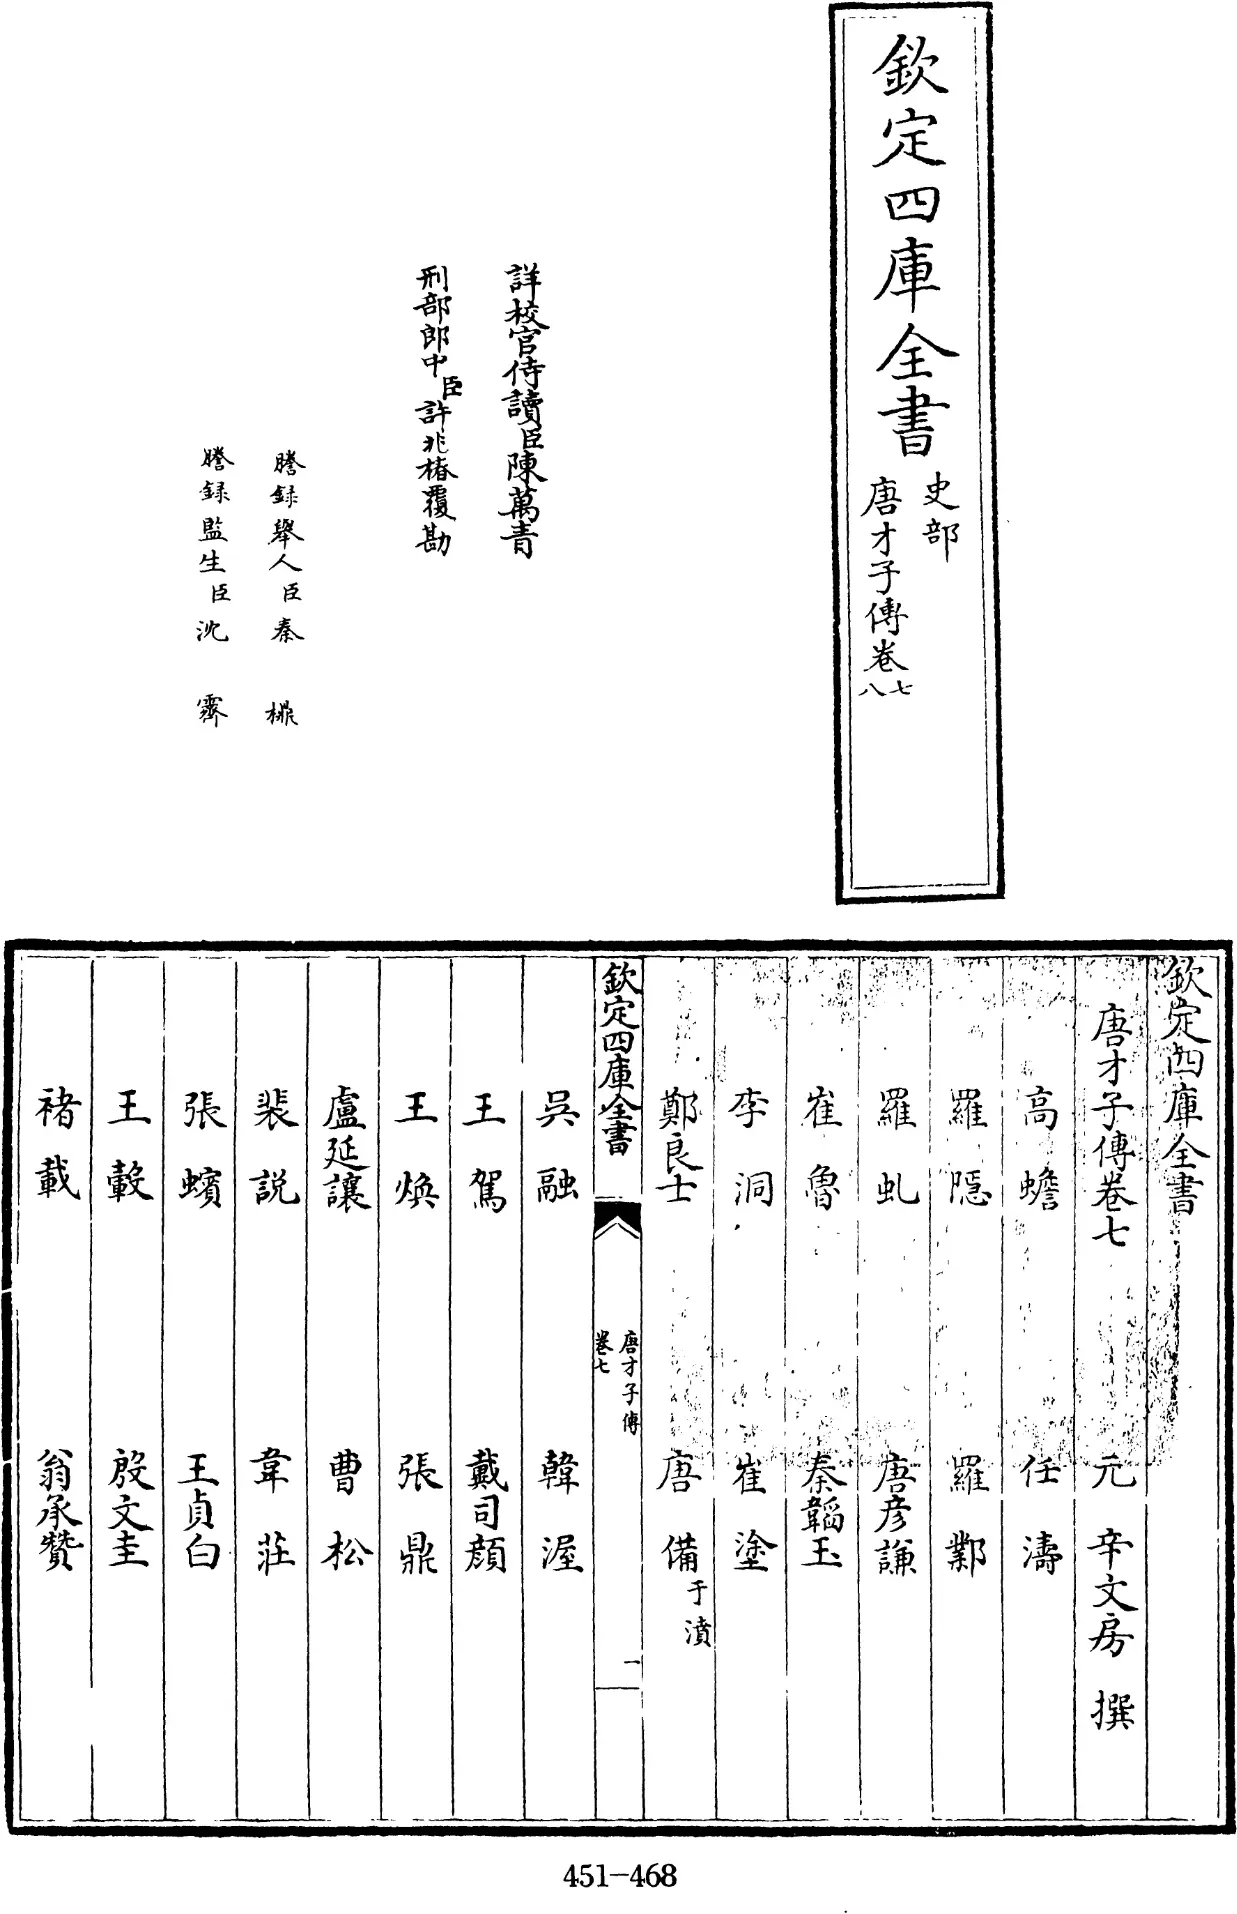 欽定四庫全書
史部
唐才子傳卷七
八
詳校官侍讀臣陳萬青
刑部郎中臣許兆椿覆勘
謄録舉人臣秦
謄録監生臣沈霽
欽定四庫全書
唐才子傳卷七 元 辛文房 撰
高蟾 任濤
羅隱 羅鄴
羅虬 唐彦謙
崔魯 秦韜玉
李洞 崔塗
鄭良士 唐備于濆
欽定四庫全書
唐才子傳
卷七
一
吳融 韓渥
王駕 戴司顔
王煥 張鼎
盧延讓 曹松
裴説 韋莊
張蠙 王貞白
王轂 殷文圭
褚載 翁承贊
451-468